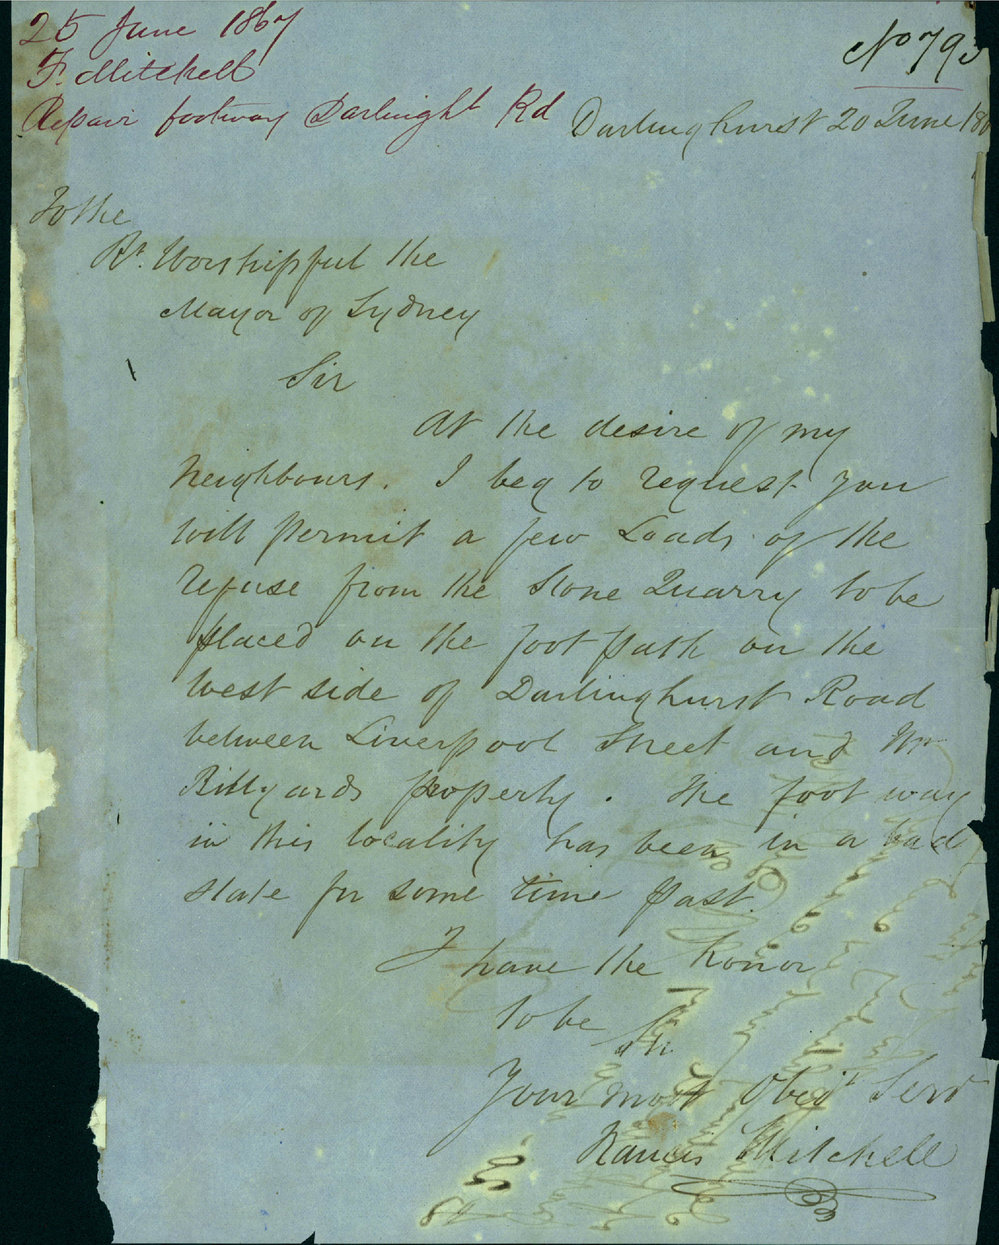 25 June 1867
F. Mitchell
Repair footway Darlinght Rd
No 79
Darlinghurst 20 June 186
To the
Rt. Worshipful the
Mayor of Sydney
Sir
At the desire of my
neighbours. I beg to request you
will permit a few Loads of the
refuse from the Stone Quarry to be
placed on the foot path on the
West side of Darlinghurst Road
between Liverpool Street and Mr
Rillyards property. The foot way
in this locality has been in a bad
state for some time past.
I have the honor
to be Sir
Your most Obedt Servt
Francis Mitchell